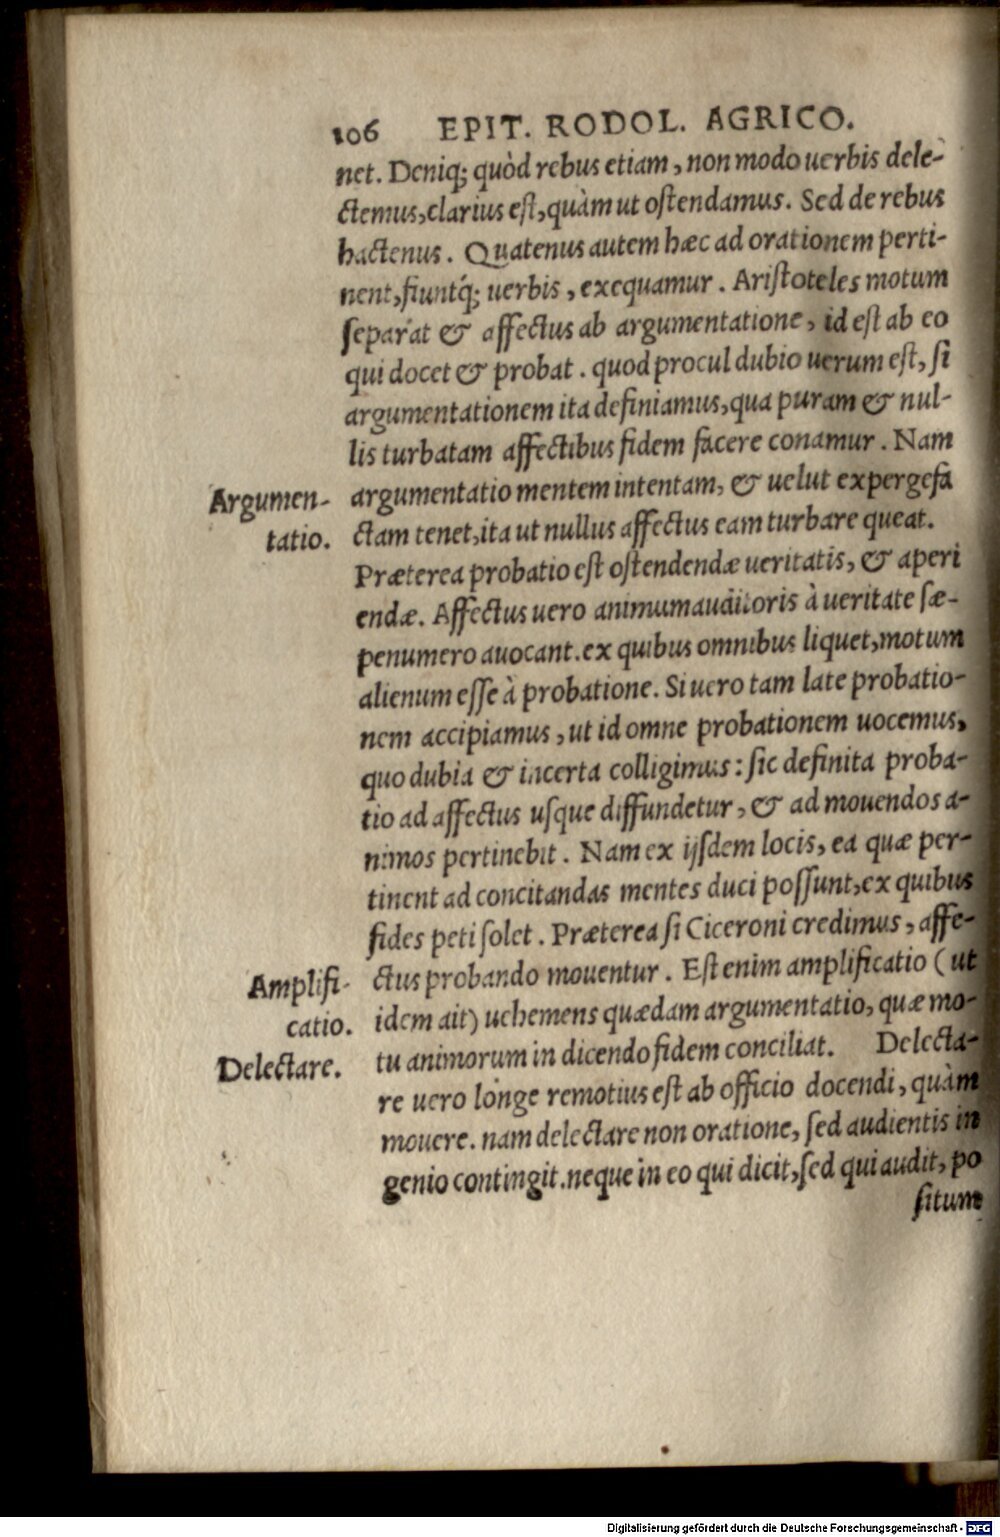 106 EPIT. RODOL. AGRICO.
net. Deniq; quòd rebus etiam, non modo uerbis dele-
ctemus, clarius est, quàm ut ostendamus. Sed de rebus
hactenus. Quatenus autem hæc ad orationem perti-
nent, fiuntq́; uerbis, exequamur. Aristoteles motum
separat & affectus ab argumentatione, id est ab eo
qui docet & probat. quod procul dubio uerum est, si
argumentationem ita definiamus, qua puram & nul-
lis turbatam affectibus fidem facere conamur. Nam
Argumen-
tatio.
argumentatio mentem intentam, & uelut expergefa
ctam tenet, ita ut nullus affectus eam turbare queat.
Præterea probatio est ostendendæ ueritatis, & aperi
endæ. Affectus uero animum auditoris à ueritate sæ-
penumero auocant. ex quibus omnibus liquet, motum
alienum esse à probatione. Si uero tam late probatio-
nem accipiamus, ut id omne probationem uocemus,
quo dubia & incerta colligimus: sic definita proba-
tio ad affectus usque diffundetur, & ad mouendos a-
nimos pertinebit. Nam ex ijsdem locis, ea quæ per-
tinent ad concitandas mentes duci possunt, ex quibus
fides peti solet. Præterea si Ciceroni credimus, affe-
Amplifi-
catio.
ctus probando mouentur. Est enim amplificatio (ut
idem ait) uehemens quædam argumentatio, quæ mo-
Delectare.
tu animorum in dicendo fidem conciliat. Delecta-
re uero longe remotius est ab officio docendi, quàm
mouere. nam delectare non oratione, sed audientis in
genio contingit. neque in eo qui dicit, sed qui audit, po
situm
Digitalisierung gefördert durch die Deutsche Forschungsgemeinschaft - DFG